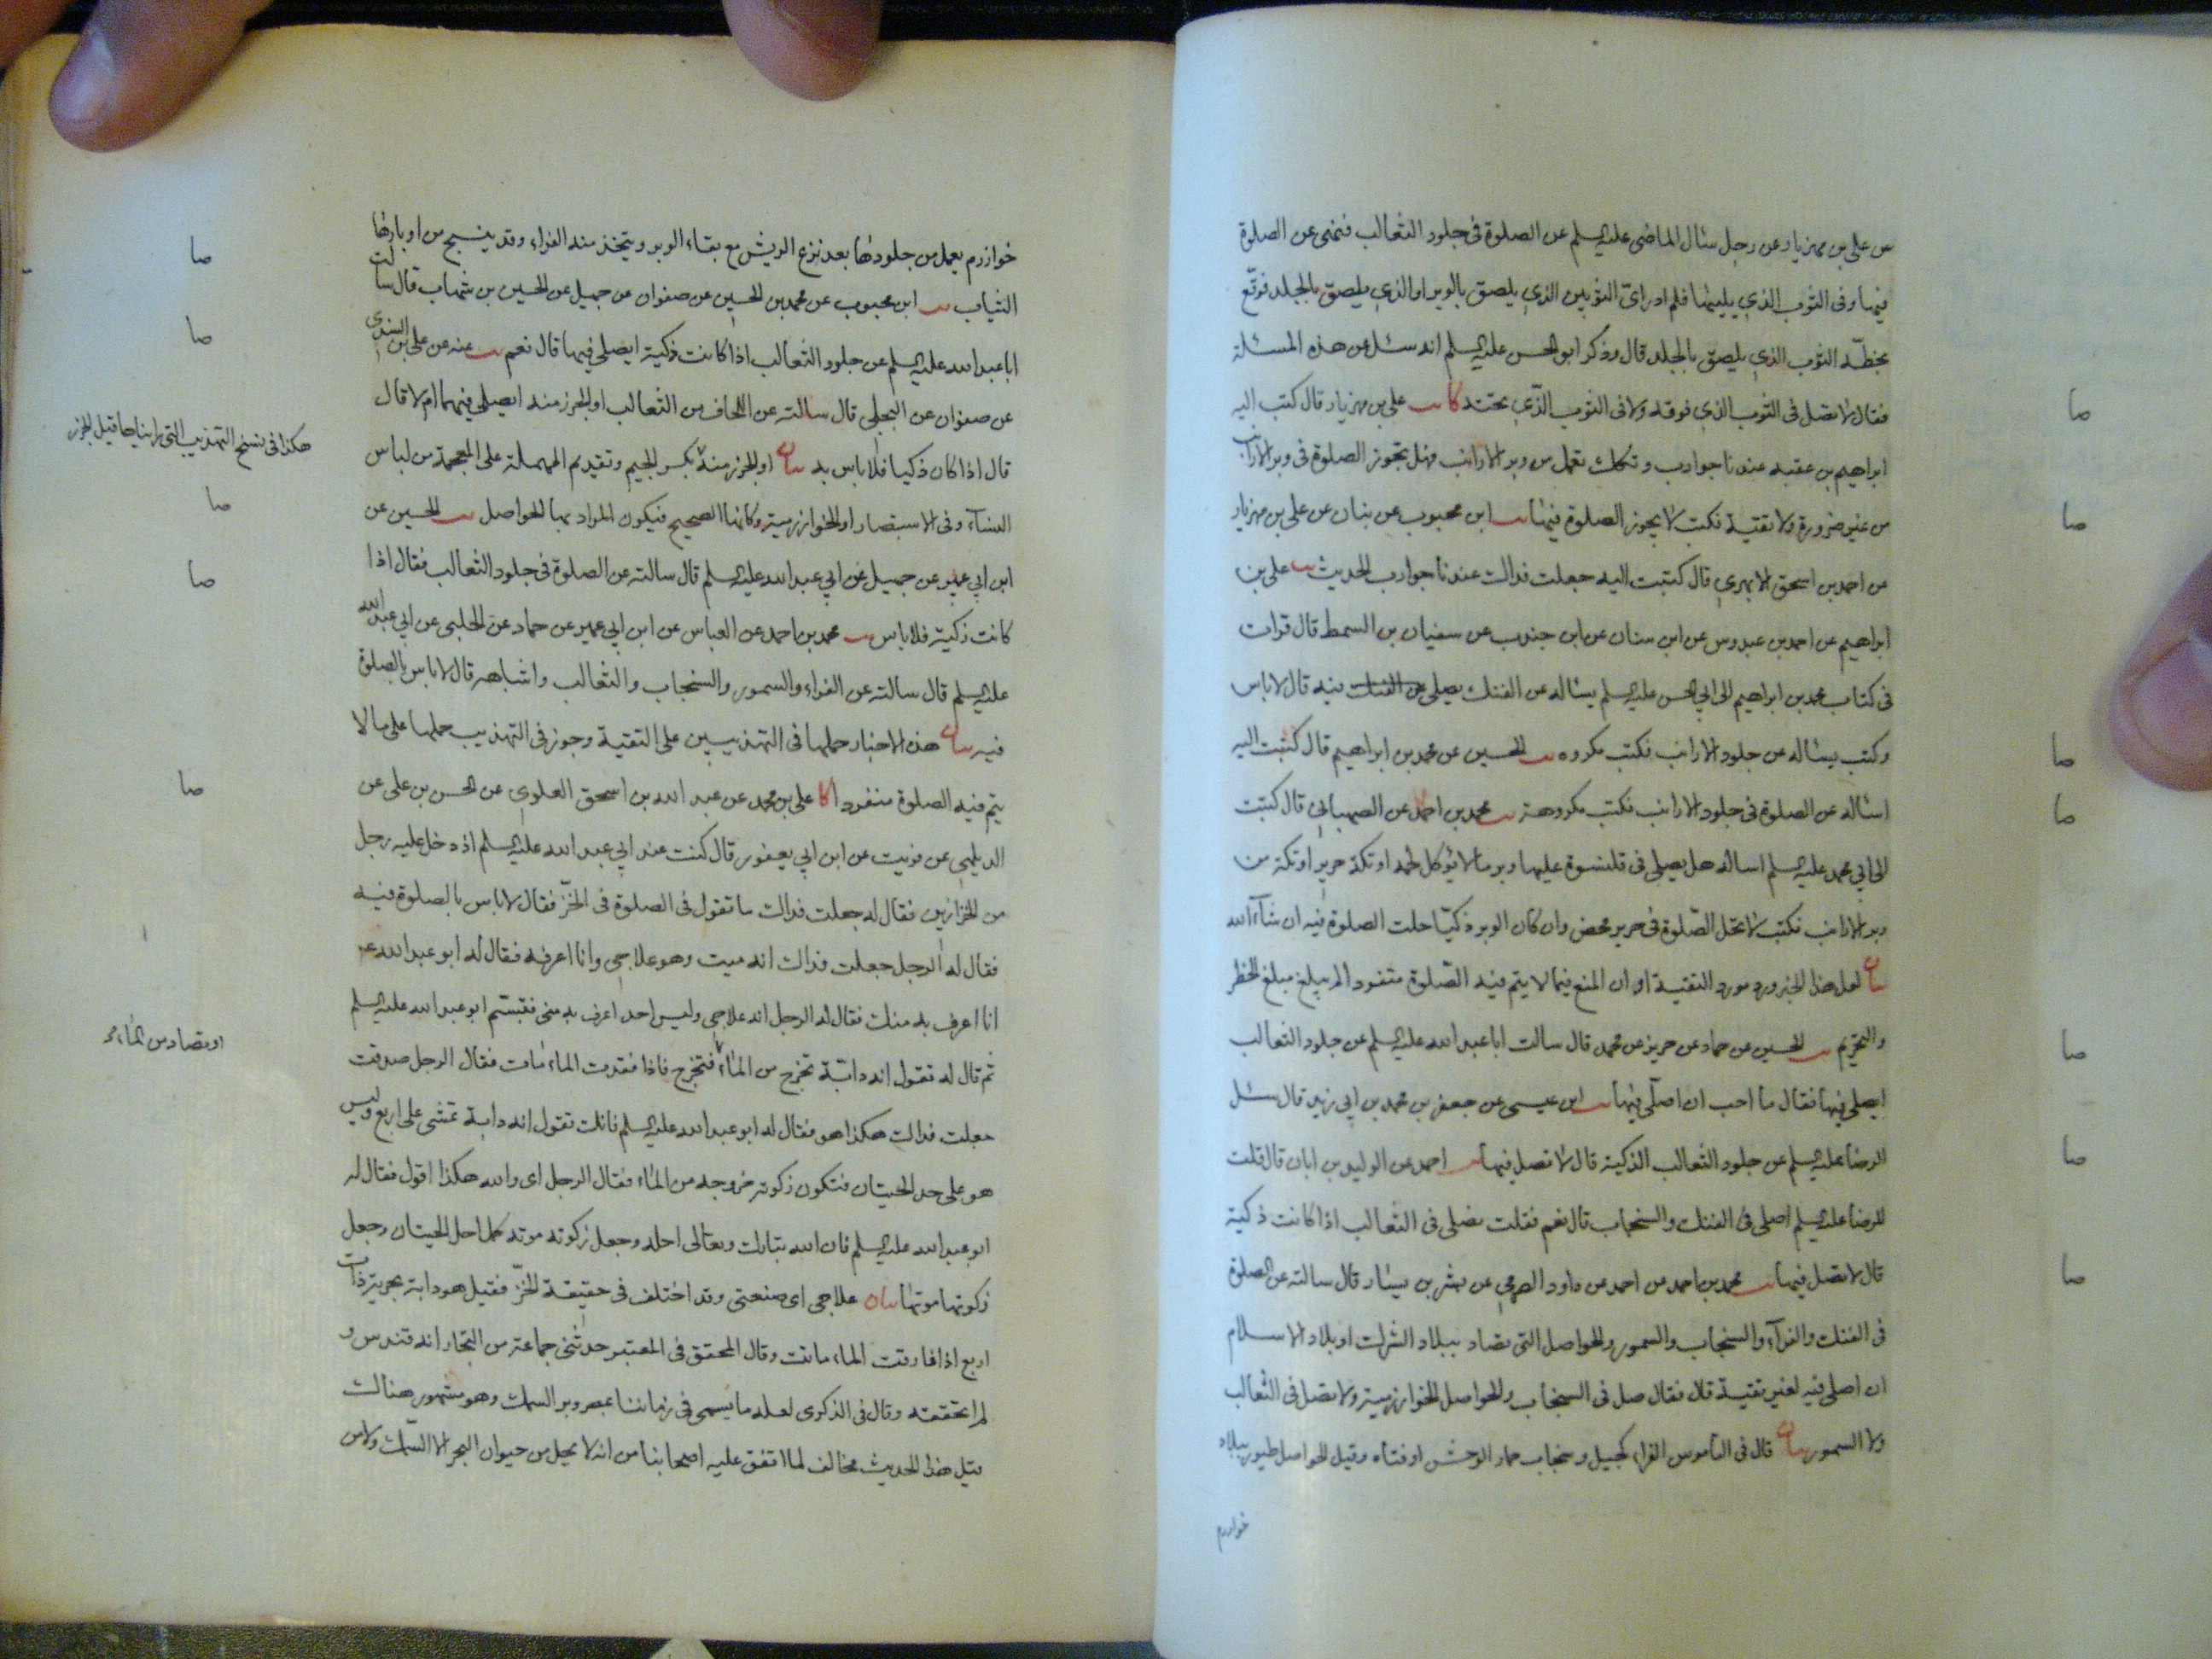 عن علي بن مهزيار عن رجل سأل الماضي عليه السلم عن الصلوة في جلود الثعالب فنهى عن الصلوة
فيها وفي الثوب الذي يليها فلم ادر اي الثوبين الذي يلصق بالوبر او الذي يلصق بالجلد فوقع
بخطه الثوب الذي يلصق بالجلد قال وذكر ابو الحسن عليه السلم انه سئل عن هذه المسئلة
فقال لا تصل في الثوب الذي فوقه ولا في الثوب الذي تحته كا يب علي بن مهزيار قال كتب اليه
ابراهيم بن عقبه عندنا جوارب وتكك تعمل من وبر الارانب فهل تجوز الصلوة في وبر الارانب
من غير ضرورة ولا تقية فكتب لا يجوز الصلوة فيها يب ابن محبوب عن بنان عن علي بن مهزيار
عن احمد بن اسحق الابهري قال كتبت اليه جعلت فداك عندنا جوارب الحديث يب علي بن
ابراهيم عن احمد بن عبدوس عن ابن سنان عن ابن جندب عن سفيان بن السمط قال قرات
في كتاب محمد بن ابراهيم الى ابي الحسن عليه السلم يسأله عن الفنك يصلي فيه قال لا باس
وكتب يسأله عن جلود الارانب فكتب مكروه يب الحسين عن محمد بن ابراهيم قال كتبت اليه
اسأله عن الصلوة في جلود الارانب فكتب مكروهة يب محمد بن احمد عن الصهباني قال كتبت
الى ابي محمد عليه السلم اساله هل يصلي في قلنسوة عليها وبر ما لا يؤكل لحمه او تكة حرير او تكة من
وبر الارانب فكتب لا تحل الصلوة في حرير محض وان كان الوبر ذكيا حلت الصلوة فيه ان شاء الله
بيان لعل هذا الخبر ورد مورد التقية او ان المنع فيما لا يتم فيه الصلوة منفردا لم يبلغ مبلغ الحظر
والتحريم يب الحسين عن حماد عن حريز عن محمد قال سالت ابا عبد الله عليه السلم عن جلود الثعالب
ايصلي فيها فقال ما احب ان اصلي فيها يب ابن عيسى عن جعفر بن محمد بن ابي زيد قال سئل
الرضا عليه السلم عن جلود الثعالب الذكية قال لا تصل فيها يب احمد عن الوليد بن ابان قال قلت
للرضا عليه السلم اصلي في الفنك والسنجاب قال نعم فقلت يصلي في الثعالب اذا كانت ذكية
قال لا تصل فيها يب محمد بن احمد عن احمد عن داود الصرمي عن بشر بن يسار قال سالته عن الصلوة
في الفنك والفرآء والسنجاب والسمور والحواصل التي تصاد ببلاد الشرك او بلاد الاسلام
ان اصلي فيه لغير تقية قال فقال صل في السنجاب والحواصل الخوارزمية ولا تصل في الثعالب
ولا السمور بيان قال في القاموس الفراء كجبل وسحاب حمار الوحش او فتاه وقيل الحواصل طيور ببلاد
خوارزم
صا
صا
صا
صا
صا
صا
صا
خوارزم يعمل من جلودها بعد نزع الريش مع بقاء الوبر ويتخذ منه الفراء وقد ينسج من اوبارها
الثياب يب ابن محبوب عن محمد بن الحسين عن صفوان عن جميل عن الحسين بن شهاب قال سالت
ابا عبد الله عليه السلم عن جلود الثعالب اذا كانت ذكية ايصلي فيها قال نعم يب عنه عن علي بن السندي
عن صفوان عن البجلي قال سالته عن اللحاف من الثعالب او الجرز منه ايصلي فيهما ام لا قال
قال اذا كان ذكيا فلا باس به بيان او الجرز منه بكسر الجيم وتقديم المهملة على المعجمة من لباس
النساء وفي الاستبصار او الخوارزمية وكانها الصحيح فيكون المراد بها الحواصل يب الحسين عن
ابن ابي عمير عن جميل عن ابي عبد الله عليه السلم قال سالته عن الصلوة في جلود الثعالب فقال اذا
كانت ذكية فلا باس يب محمد بن احمد عن العباس عن ابن ابي عمير عن حماد عن الحلبي عن ابي عبد الله
عليه السلم قال سالته عن الفراء والسمور والسنجاب والثعالب واشباهه قال لا باس بالصلوة
فيه بيان هذه الاخبار حملها في التهذيبين على التقية وجوز في التهذيب حملها على ما لا
يتم فيه الصلوة منفردا كا علي بن محمد عن عبد الله بن اسحق العلوي عن الحسن بن علي عن
الديلمي عن فريت عن ابن ابي يعفور قال كنت عند ابي عبد الله عليه السلم اذ دخل عليه رجل
من الخزازين فقال له جعلت فداك ما تقول في الصلوة في الخز فقال لا باس بالصلوة فيه
فقال له الرجل جعلت فداك انه ميت وهو علاجي وانا اعرفه فقال له ابو عبد الله ع
انا اعرف به منك فقال له الرجل انه علاجي وليس احد اعرف به مني فتبسم ابو عبد الله عليه السلم
ثم قال له تقول انه دابة تخرج من الماء فتخرج فاذا فقدت الماء ماتت فقال الرجل صدقت
جعلت فداك هكذا هو فقال له ابو عبد الله عليه السلم فانك تقول انه دابة تمشي على اربع وليس
هو على حد الحيتان فتكون زكوته خروجه من الماء فقال الرجل اي والله هكذا اقول فقال له
ابو عبد الله عليه السلم فان الله تبارك وتعالى احله وجعل زكوته موته كما احل الحيتان وجعل
زكوتها موتها بيان علاجي اي صنعتي وقد اختلف في حقيقة الخز فقيل هو دابة بحرية ذات
اربع اذا فارقت الماء ماتت وقال المحقق في المعتبر حدثني جماعة من التجار انه قندس و
لم اتحققه وقال في الذكرى لعله ما يسمى في زماننا بمصر وبر السمك وهو مشهور هناك
قيل هذا الحديث مخالف لما اتفق عليه اصحابنا من انه لا يحل من حيوان البحر الا السمك ولا من
صا
صا
هكذا في نسخ التهذيب التي رايناها قيل الجرز
صا
صا
صا
او تصاد من الماء